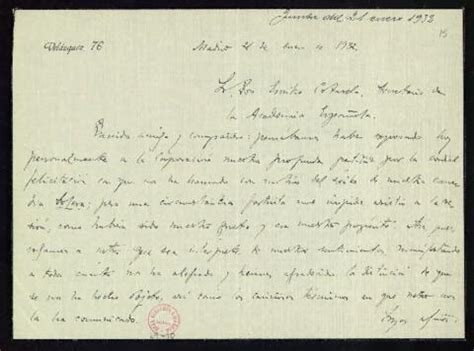 Junta del 21 enero 1932
Velázquez, 76
Madrid 21 de enero de 1932.
Sr. Don Emilio Cotarelo, Secretario de
la Academia Española.
Querido amigo y compañero: pensábamos haber expresado hoy
personalmente a la Corporación nuestra profunda gratitud por la cordial
felicitación con que nos ha honrado con motivo del éxito de nuestra come-
dia ; pero una circunstancia fortuita nos impide asistir a la se-
sión, como hubiera sido nuestro gusto y era nuestro propósito. Por eso,
rogamos a usted que sea intérprete de nuestros sentimientos, manifestando
a todos cuánto nos ha alegrado y hemos agradecido la distinción de que
se nos ha hecho objeto, así como los cariñosos términos en que usted nos
la ha comunicado.